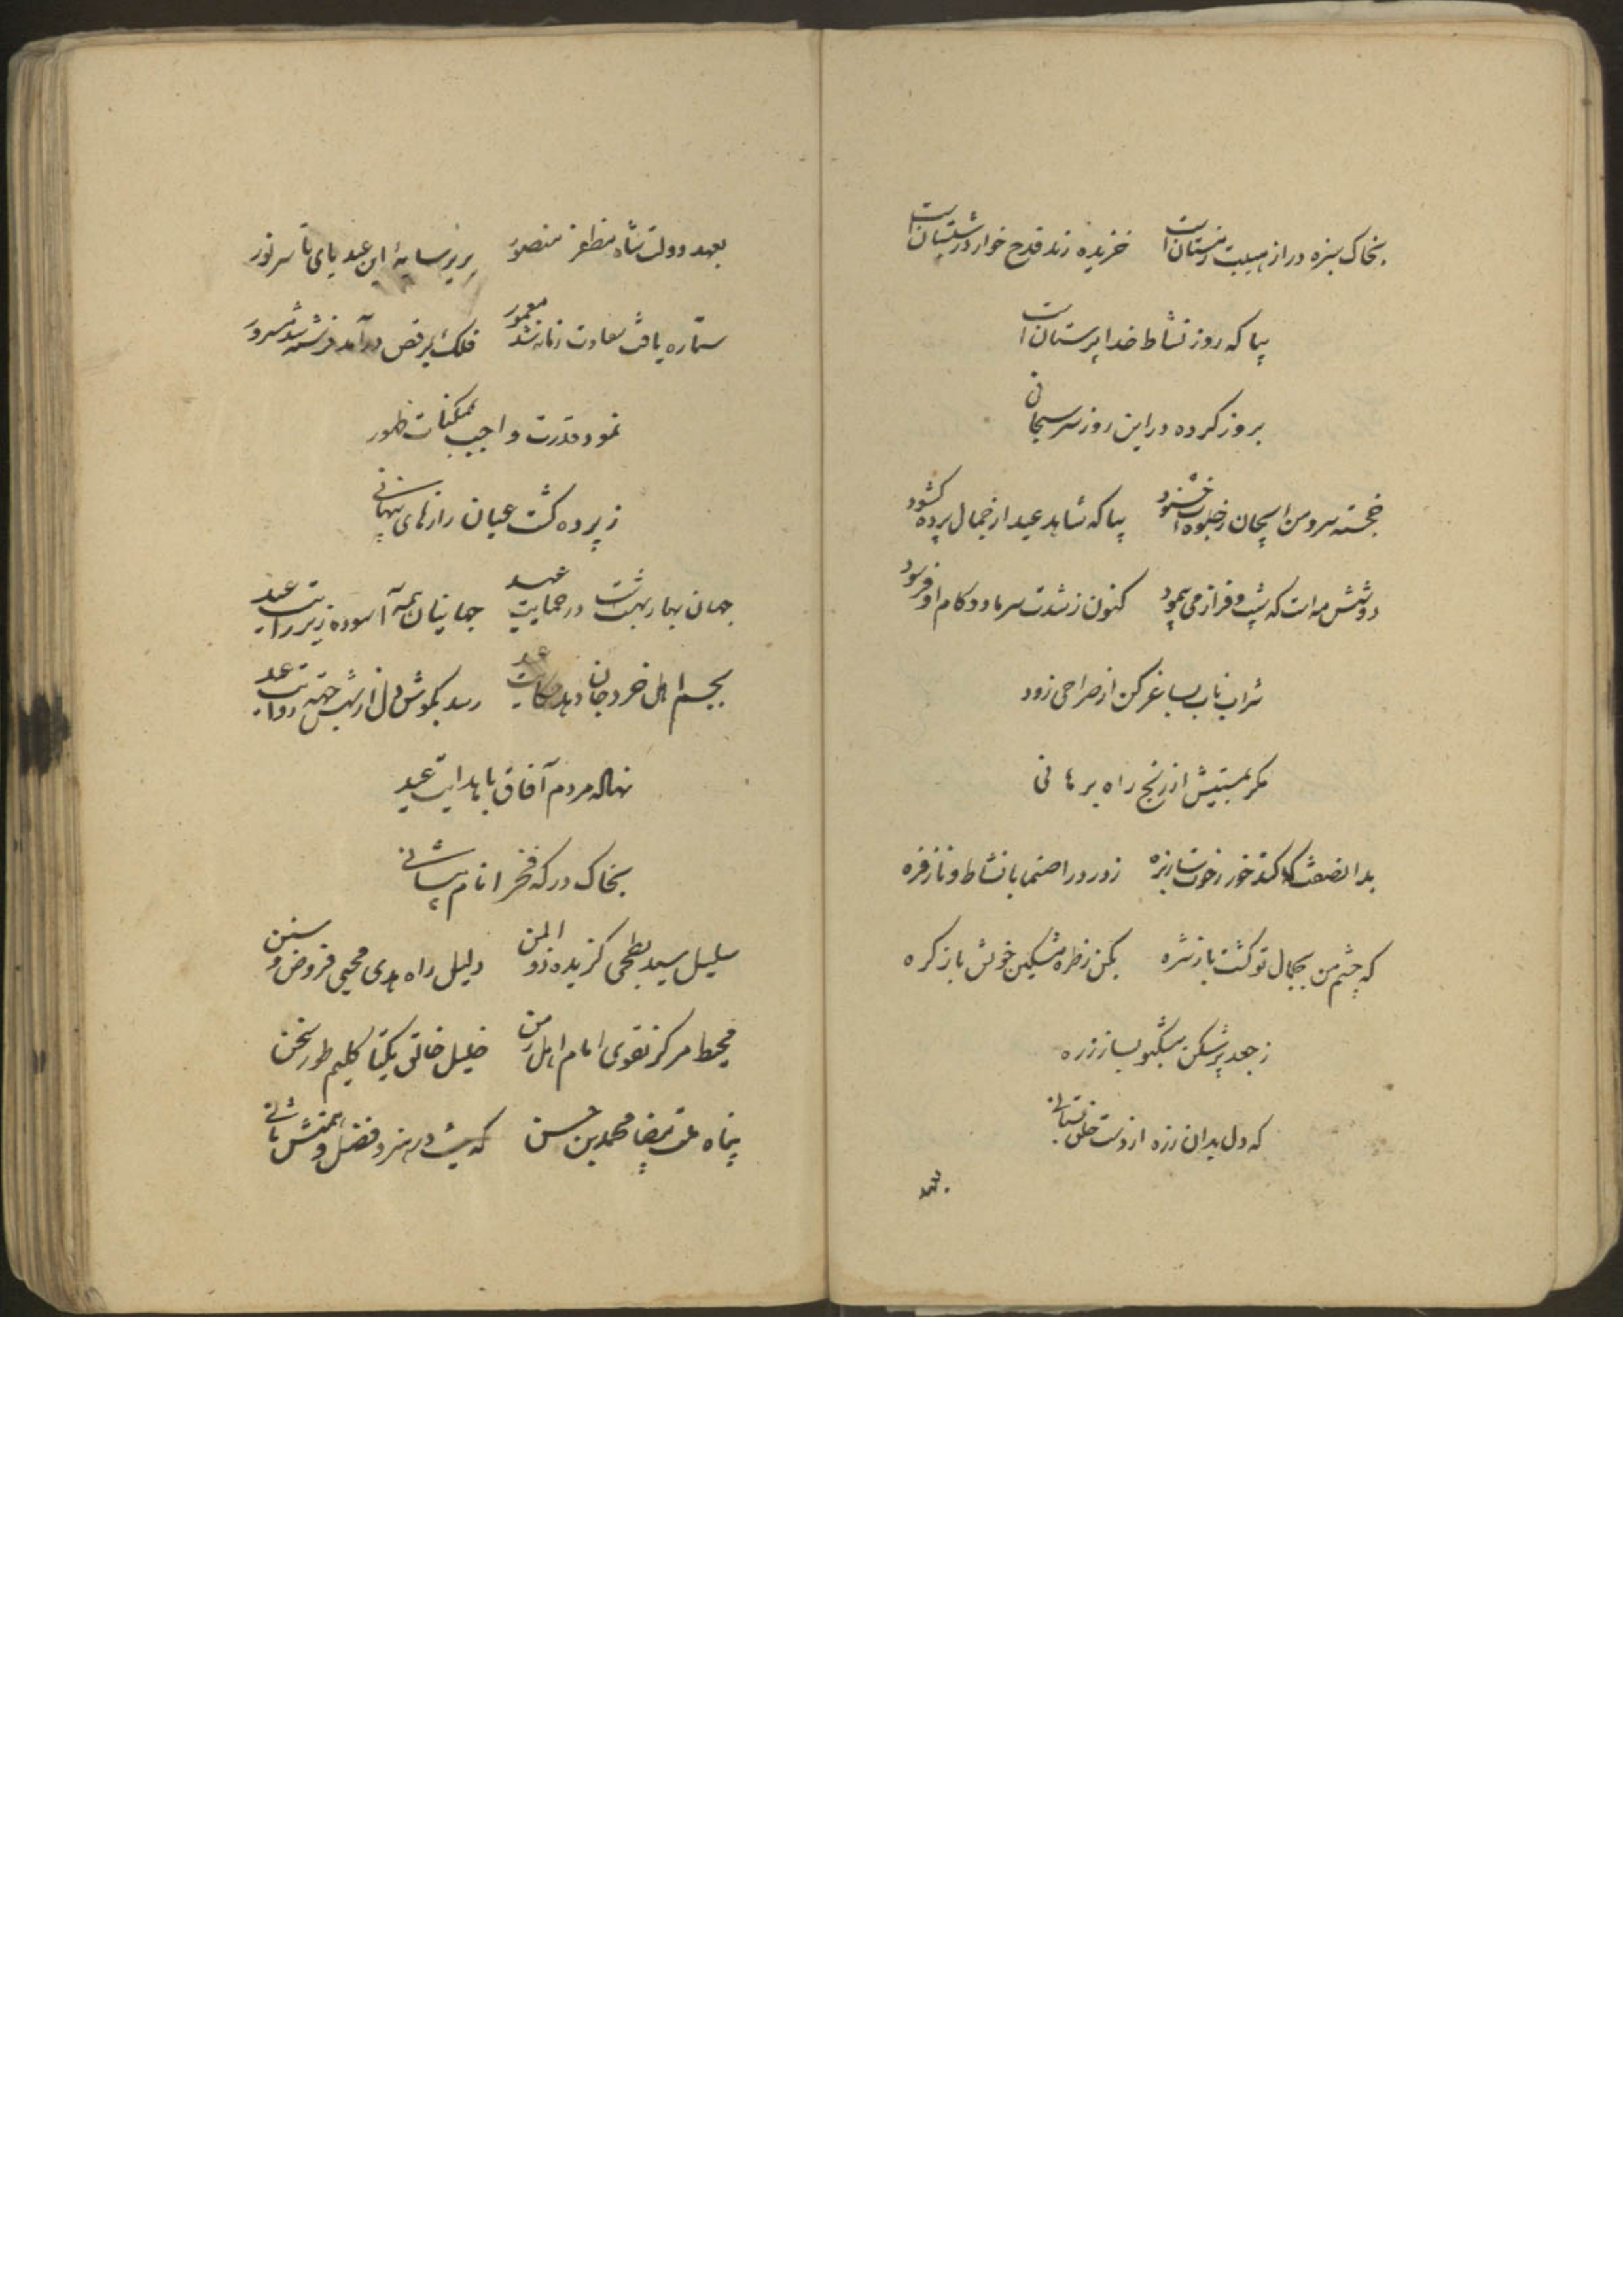 بخاک سبزه در از هیبت زمستان است خزیده زند قدح خوار در شبستان است
بیا که روز نشاط خدا پرستان است
بروز کرده در این روز سر سبحانی
خجسته سروش ز جلوه خشنود بیا که شاهد عید از جمال پرده کشود
دو شش مه است که شیب و فراز می پیمود کنون ز شدت سرما دو کام او فرسود
شراب ناب بساغر کن از صراحی زود
مکر بمستیش از رنج راه برهانی
بدانصفت که کند خور ز حوت ساز بزه ز در درا صنما با نشاط و ناز فره
که چشم من بجمال تو کشت باز نثره بکن ز طره مشکین خویش باز کره
ز جعد پرشکن مشکبو بساز زره
که دل بدان زره از دست خلق بستانی
بعهد دولت شاه مظفر منصور بزیر سایهٔ این عید پای تا سر نور
ستاره یافت سعادت زمانه شد معمور فلک برقص درآمد فرشته شد مسرور
نمود قدرت واجب بممکنات ظهور
ز پرده کشت عیان رازهای پنهانی
جهان بهار بهشت در حمایت عید جهانیان همه آسوده زیر رایت عید
بجسم اهل خرد جان دهد حکایت عید رسد بکوش دل از شش جهة روایت عید
نهاله مردم آفاق با هدایت عید
بخاک درکه فخر انام پیشانی
سلیل سید بطحی کزیده ذو المنن دلیل راه هدی محیی فروض و سنن
محیط مرکز تقوی امام اهل زمن خلیل خالق یکتا کلیم طور سخن
پناه ملت بیضا محمد بن حسن که نیست در هنر و فضل و همتش ثانی